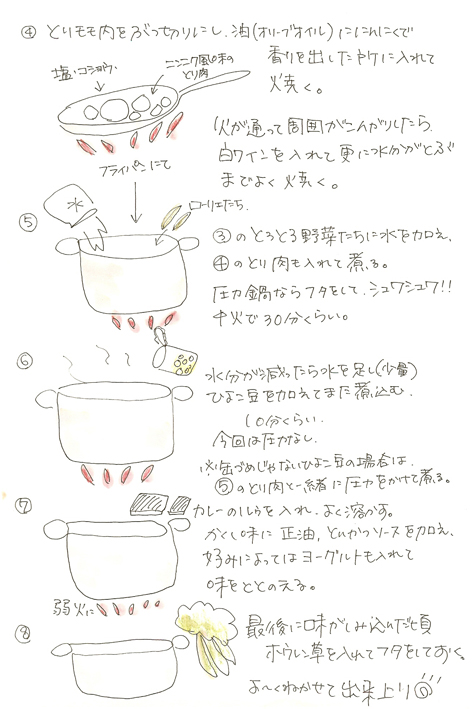 ④ とりモモ肉をぶつ切りにし、油(オリーブオイル)ににんにくで
香りを出したヤケに入れて
焼く。
塩・コショウ
ニンニク風味の
とり肉
火が通って周囲がこんがりしたら、
白ワインを入れて更に水分がとぶ
までよく焼く。
フライパンにて
⑤
水
ローリエたち、
③のとろとろ野菜たちに水を加え、
④のとり肉も入れて煮る。
圧力鍋ならフタをして、シュワシュワ!!
中火で30分くらい。
⑥
水分が減ったら水を足し(少量)
ひよこ豆を加えてまた煮込む、
10分くらい
今回は圧力なし、
※缶づめじゃないひよこ豆の場合は、
⑤のとり肉と一緒に圧力をかけて煮る。
⑦
カレーのルウを入れ、よく溶かす。
かくし味に正油、とんかつソースを加え、
好みによってはヨーグルトも入れて
味をととのえる。
弱火に
⑧
最後に味がしみ込んだ頃
ホウレン草を入れてフタをしておく。
よ〜くねかせて出来上り